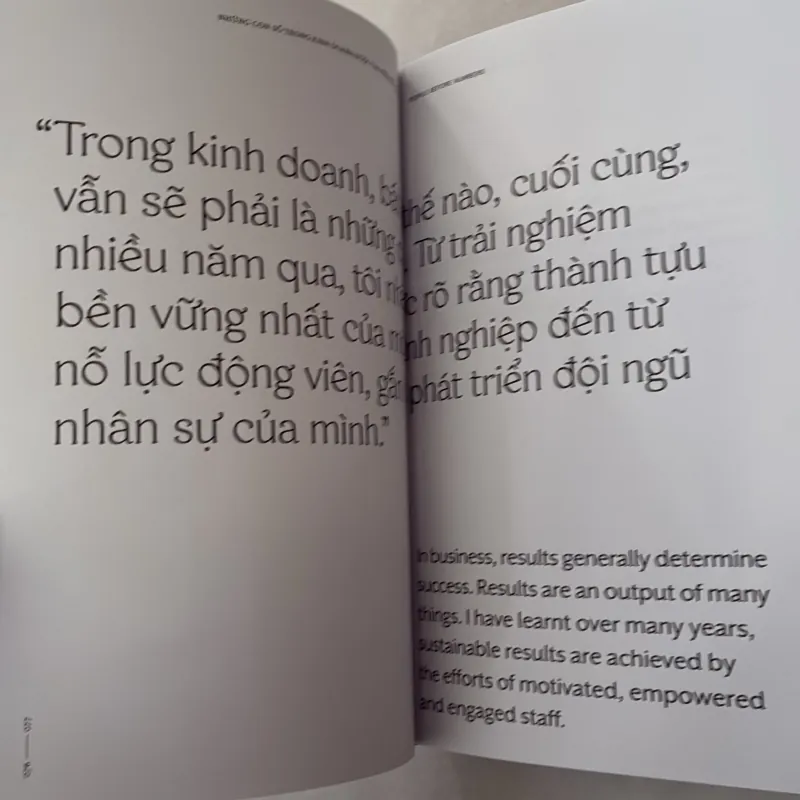 PEOPLE BEYOND NUMBERS
“Trong kinh doanh, thế nào, cuối cùng,
vẫn sẽ phải là những Từ trải nghiệm
nhiều năm qua, tôi rõ rằng thành tựu
bền vững nhất của nghiệp đến từ
nỗ lực động viên, phát triển đội ngũ
nhân sự của mình.”
In business, results generally determine
success. Results are an output of many
things. I have learnt over many years,
sustainable results are achieved by
the efforts of motivated, empowered
and engaged staff.